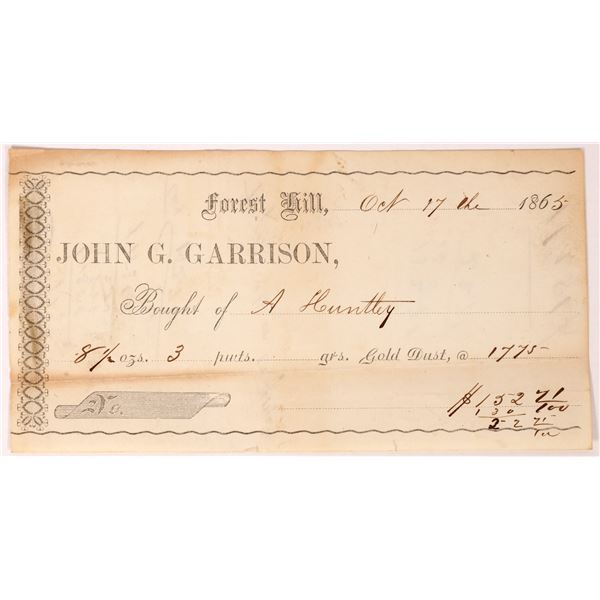 Forest Hill, Oct 17 the 1865
JOHN G. GARRISON,
Bought of A Huntley
8½ ozs. 3 pwts. grs. Gold Dust, @ 1775
No.
$152 71/100
130
22 71/100